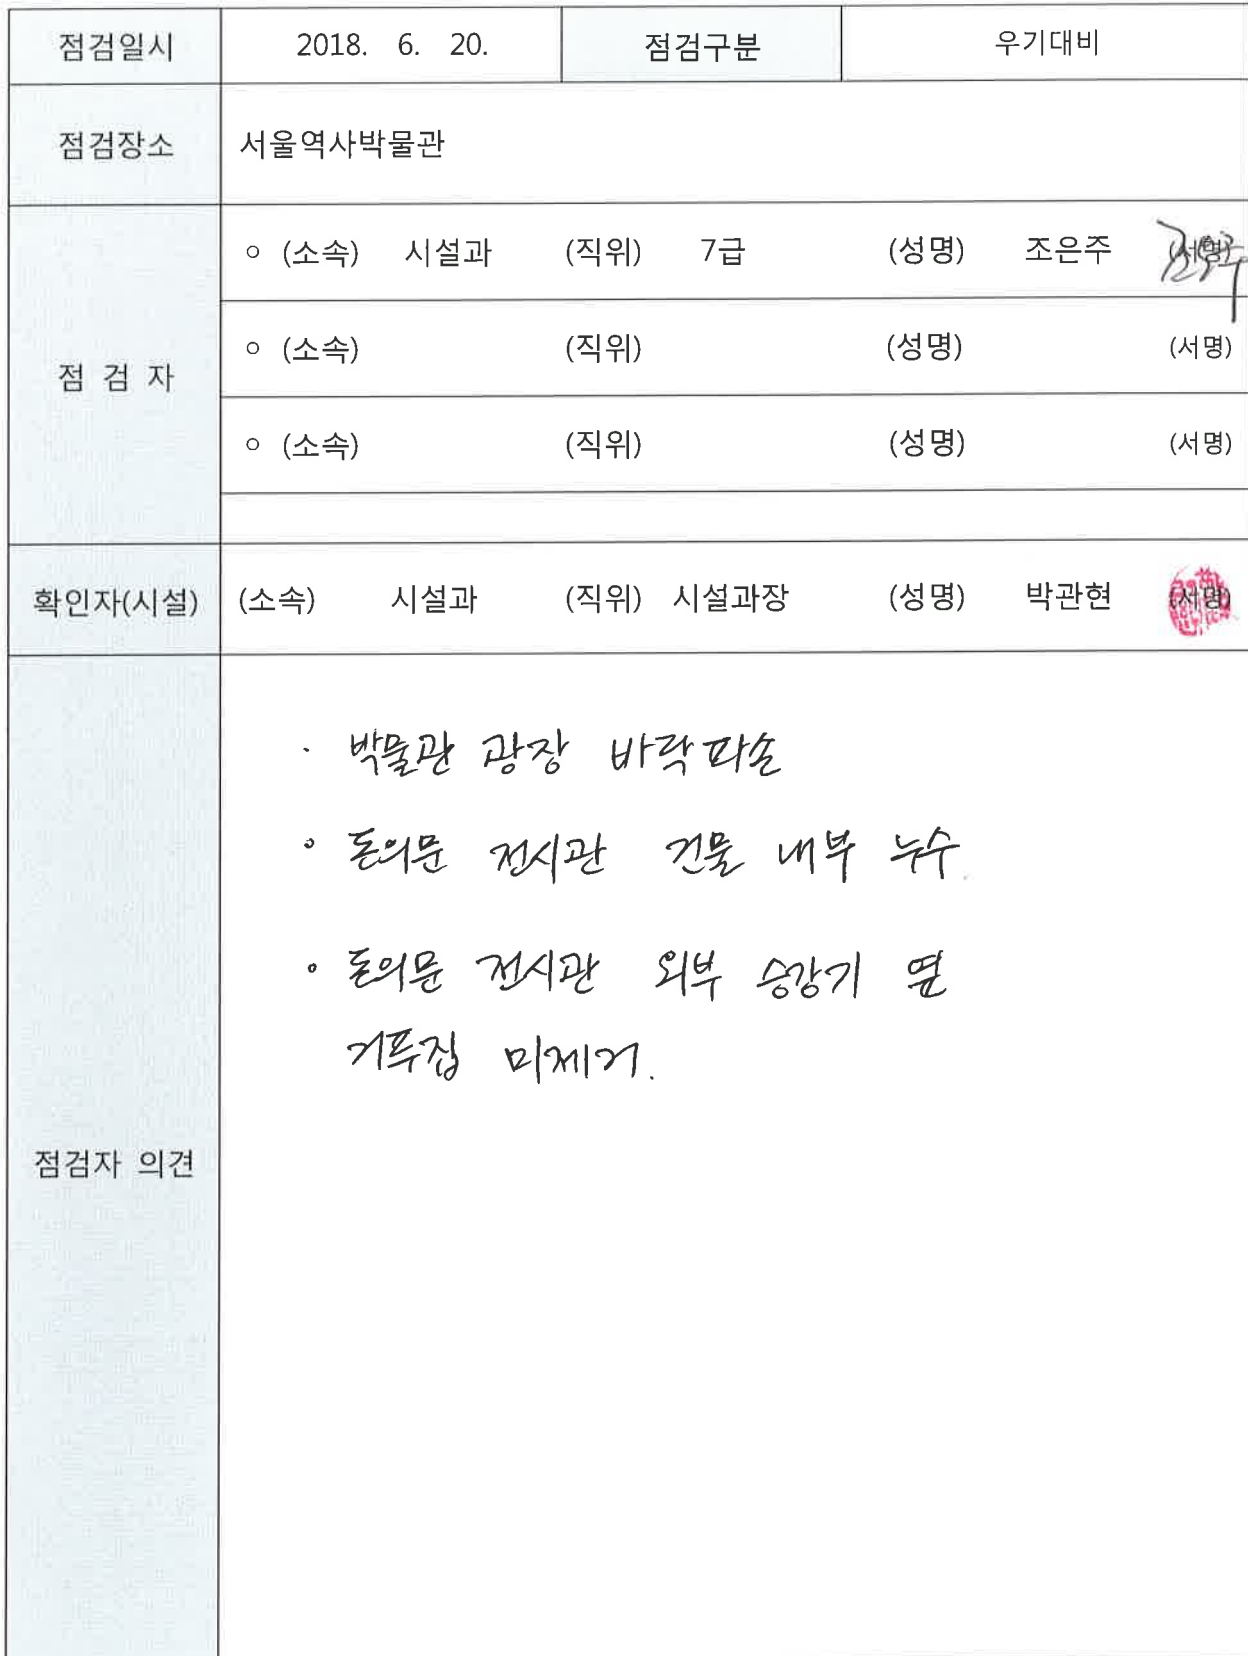 점검일시 2018. 6. 20. 점검구분 우기대비
점검장소 서울역사박물관
○ (소속) 시설과 (직위) 7급 (성명) 조은주 (서명)
점 검 자 ○ (소속) (직위) (성명) (서명)
○ (소속) (직위) (성명) (서명)
확인자(시설) (소속) 시설과 (직위) 시설과장 (성명) 박관현 (서명)
· 박물관 광장 바락파손
° 돈의문 전시관 건물 내부 누수.
° 돈의문 전시관 외부 승강기 옆
거푸집 미제거.
점검자 의견